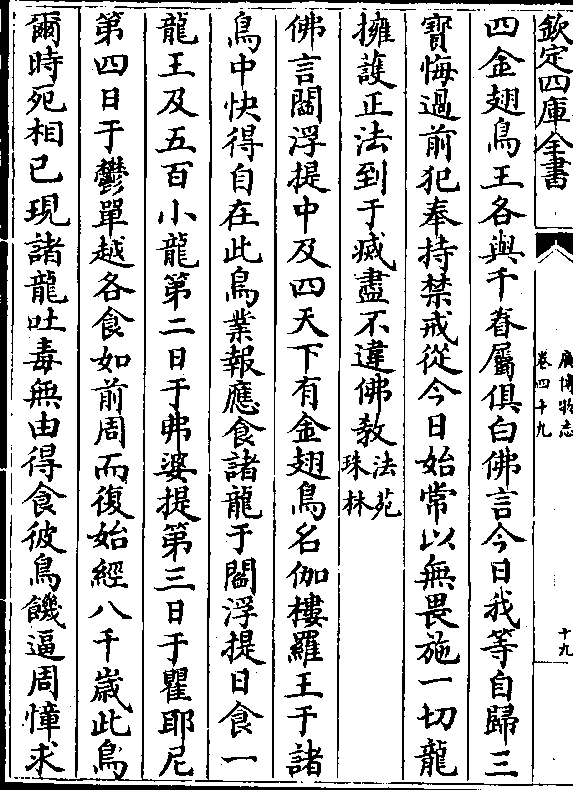 欽定四庫全書
廣博物志
卷四十九
十九
四金翅鳥王各與千眷屬俱白佛言今日我等自歸三
寳悔過前犯奉持禁戒從今日始常以無畏施一切龍
擁護正法到于滅盡不違佛教法苑
珠林
佛言閻浮提中及四天下有金翅鳥名伽樓羅王于諸
鳥中快得自在此鳥業報應食諸龍于閻浮提日食一
龍王及五百小龍第二日于弗婆提第三日于瞿耶尼
第四日于鬱單越各食如前周而復始經八千歲此鳥
爾時死相已現諸龍吐毒無由得食彼鳥饑逼周慞求